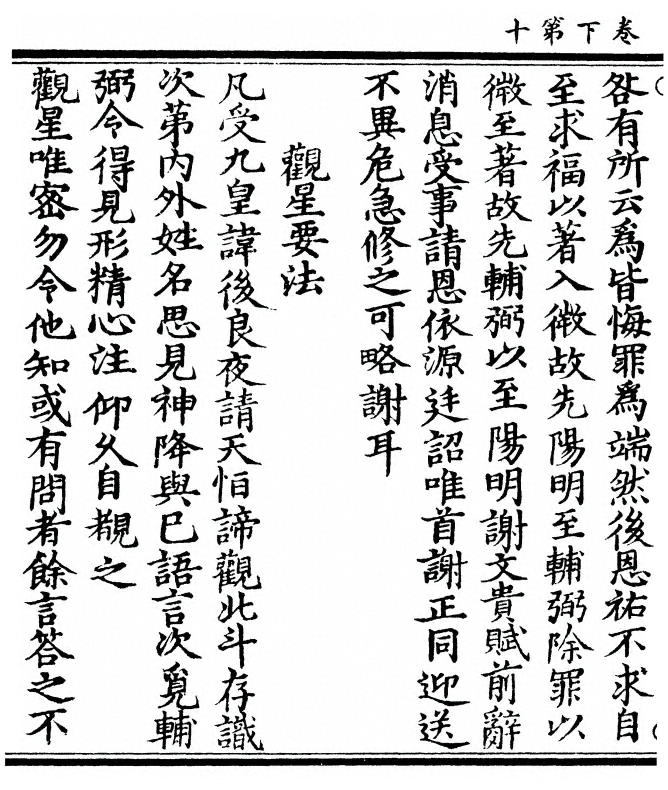 卷下第十
咎有所云爲皆悔罪爲端然後恩祐不求自
至求福以著入微故先陽明至輔弼除罪以
微至著故先輔弼以至陽明謝文貴賦前辭
消息受事請恩依源迬詔唯首謝正同迎送
不異危急修之可略謝耳
觀星要法
凡受九皇諱後良夜請天怕諦觀北斗存識
次第内外姓名思見神降與已語言次覓輔
弼令得見形精心注仰久自覩之
觀星唯密勿令他知或有問者餘言答之不